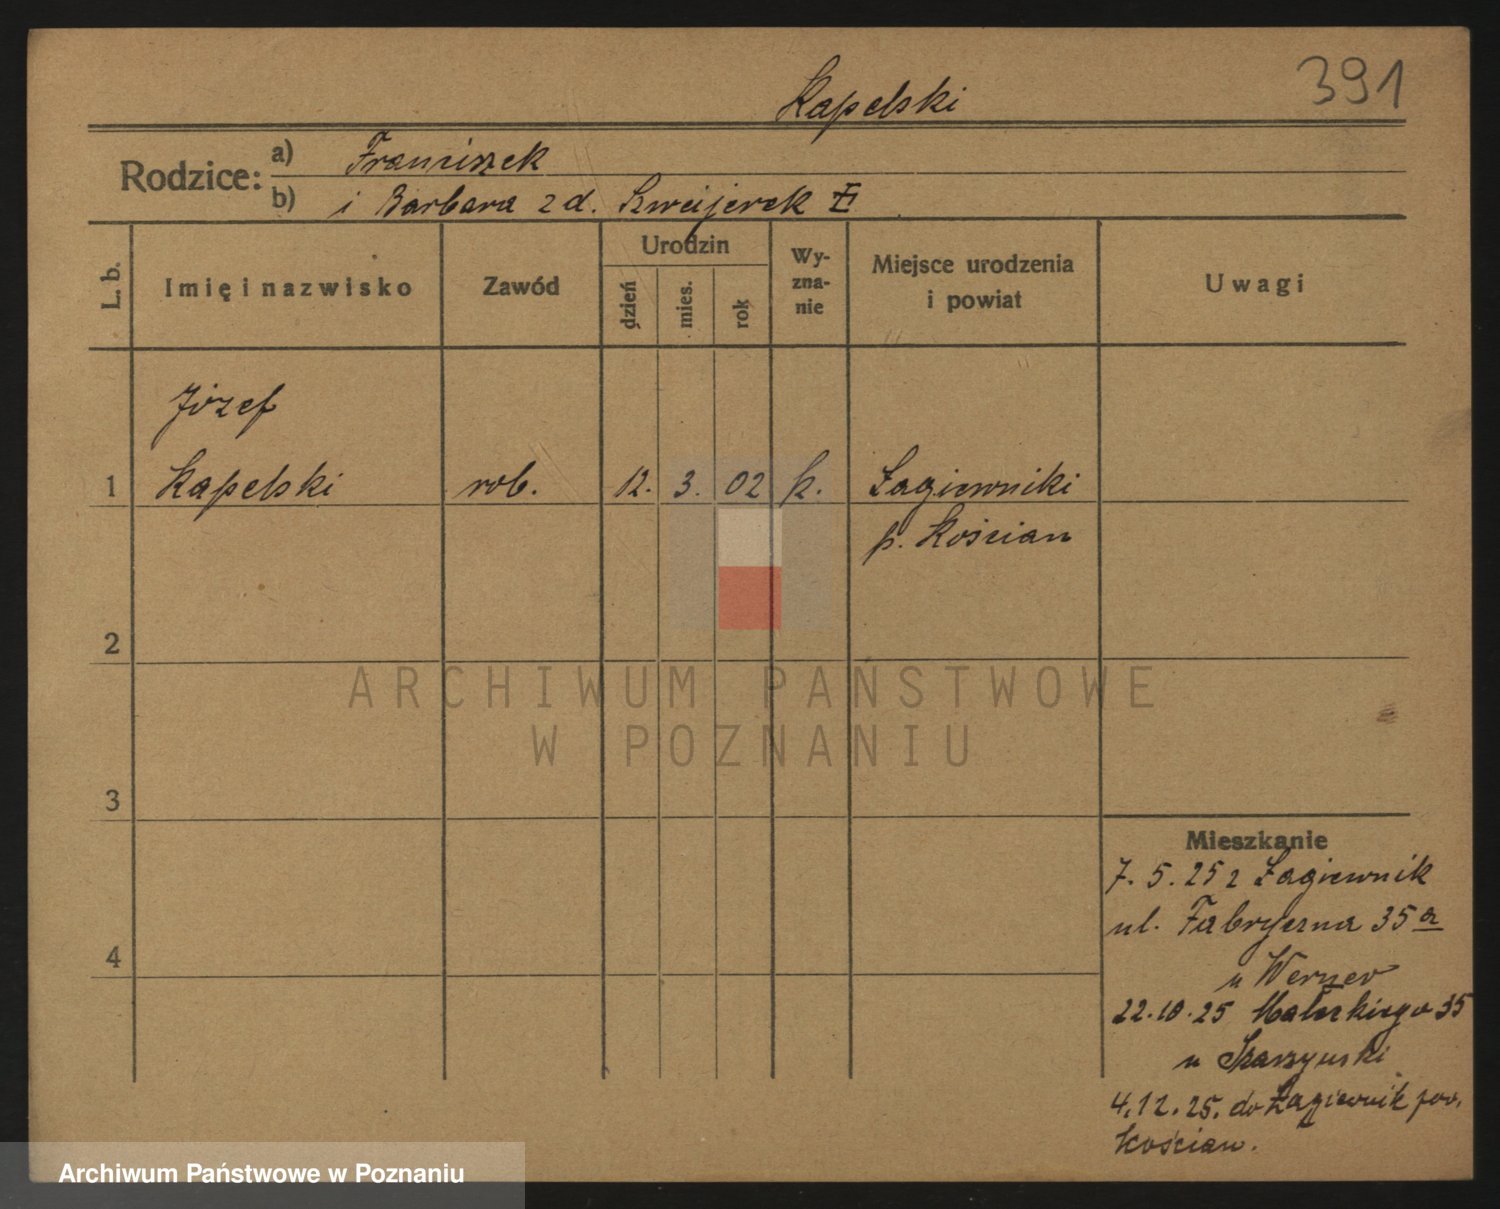 Kapelski 391
Rodzice: a) Franciszek
b) i Barbara z d. Szweijerek
L. b. Imię i nazwisko Zawód Urodzin dzień mies. rok Wyzna-nie Miejsce urodzenia i powiat Uwagi
Józef
1 Kapelski rob. 12. 3. 02 k. Łagiewniki
p. Kościan
2
ARCHIWUM PAŃSTWOWE
W POZNANIU
3
Mieszkanie
7. 5. 25 z Łagiewnik
ul. Fabryczna 35 a
4
u Werner
22.10.25 Małeckiego 35
u Skarzyński
4.12.25. do Łagiewnik pow.
Kościan.
Archiwum Państwowe w Poznaniu